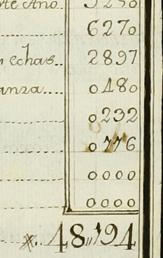 te Ano.
6270
echas. 2897
anza.. 0480
0232
0776
0000
0000
48,,194